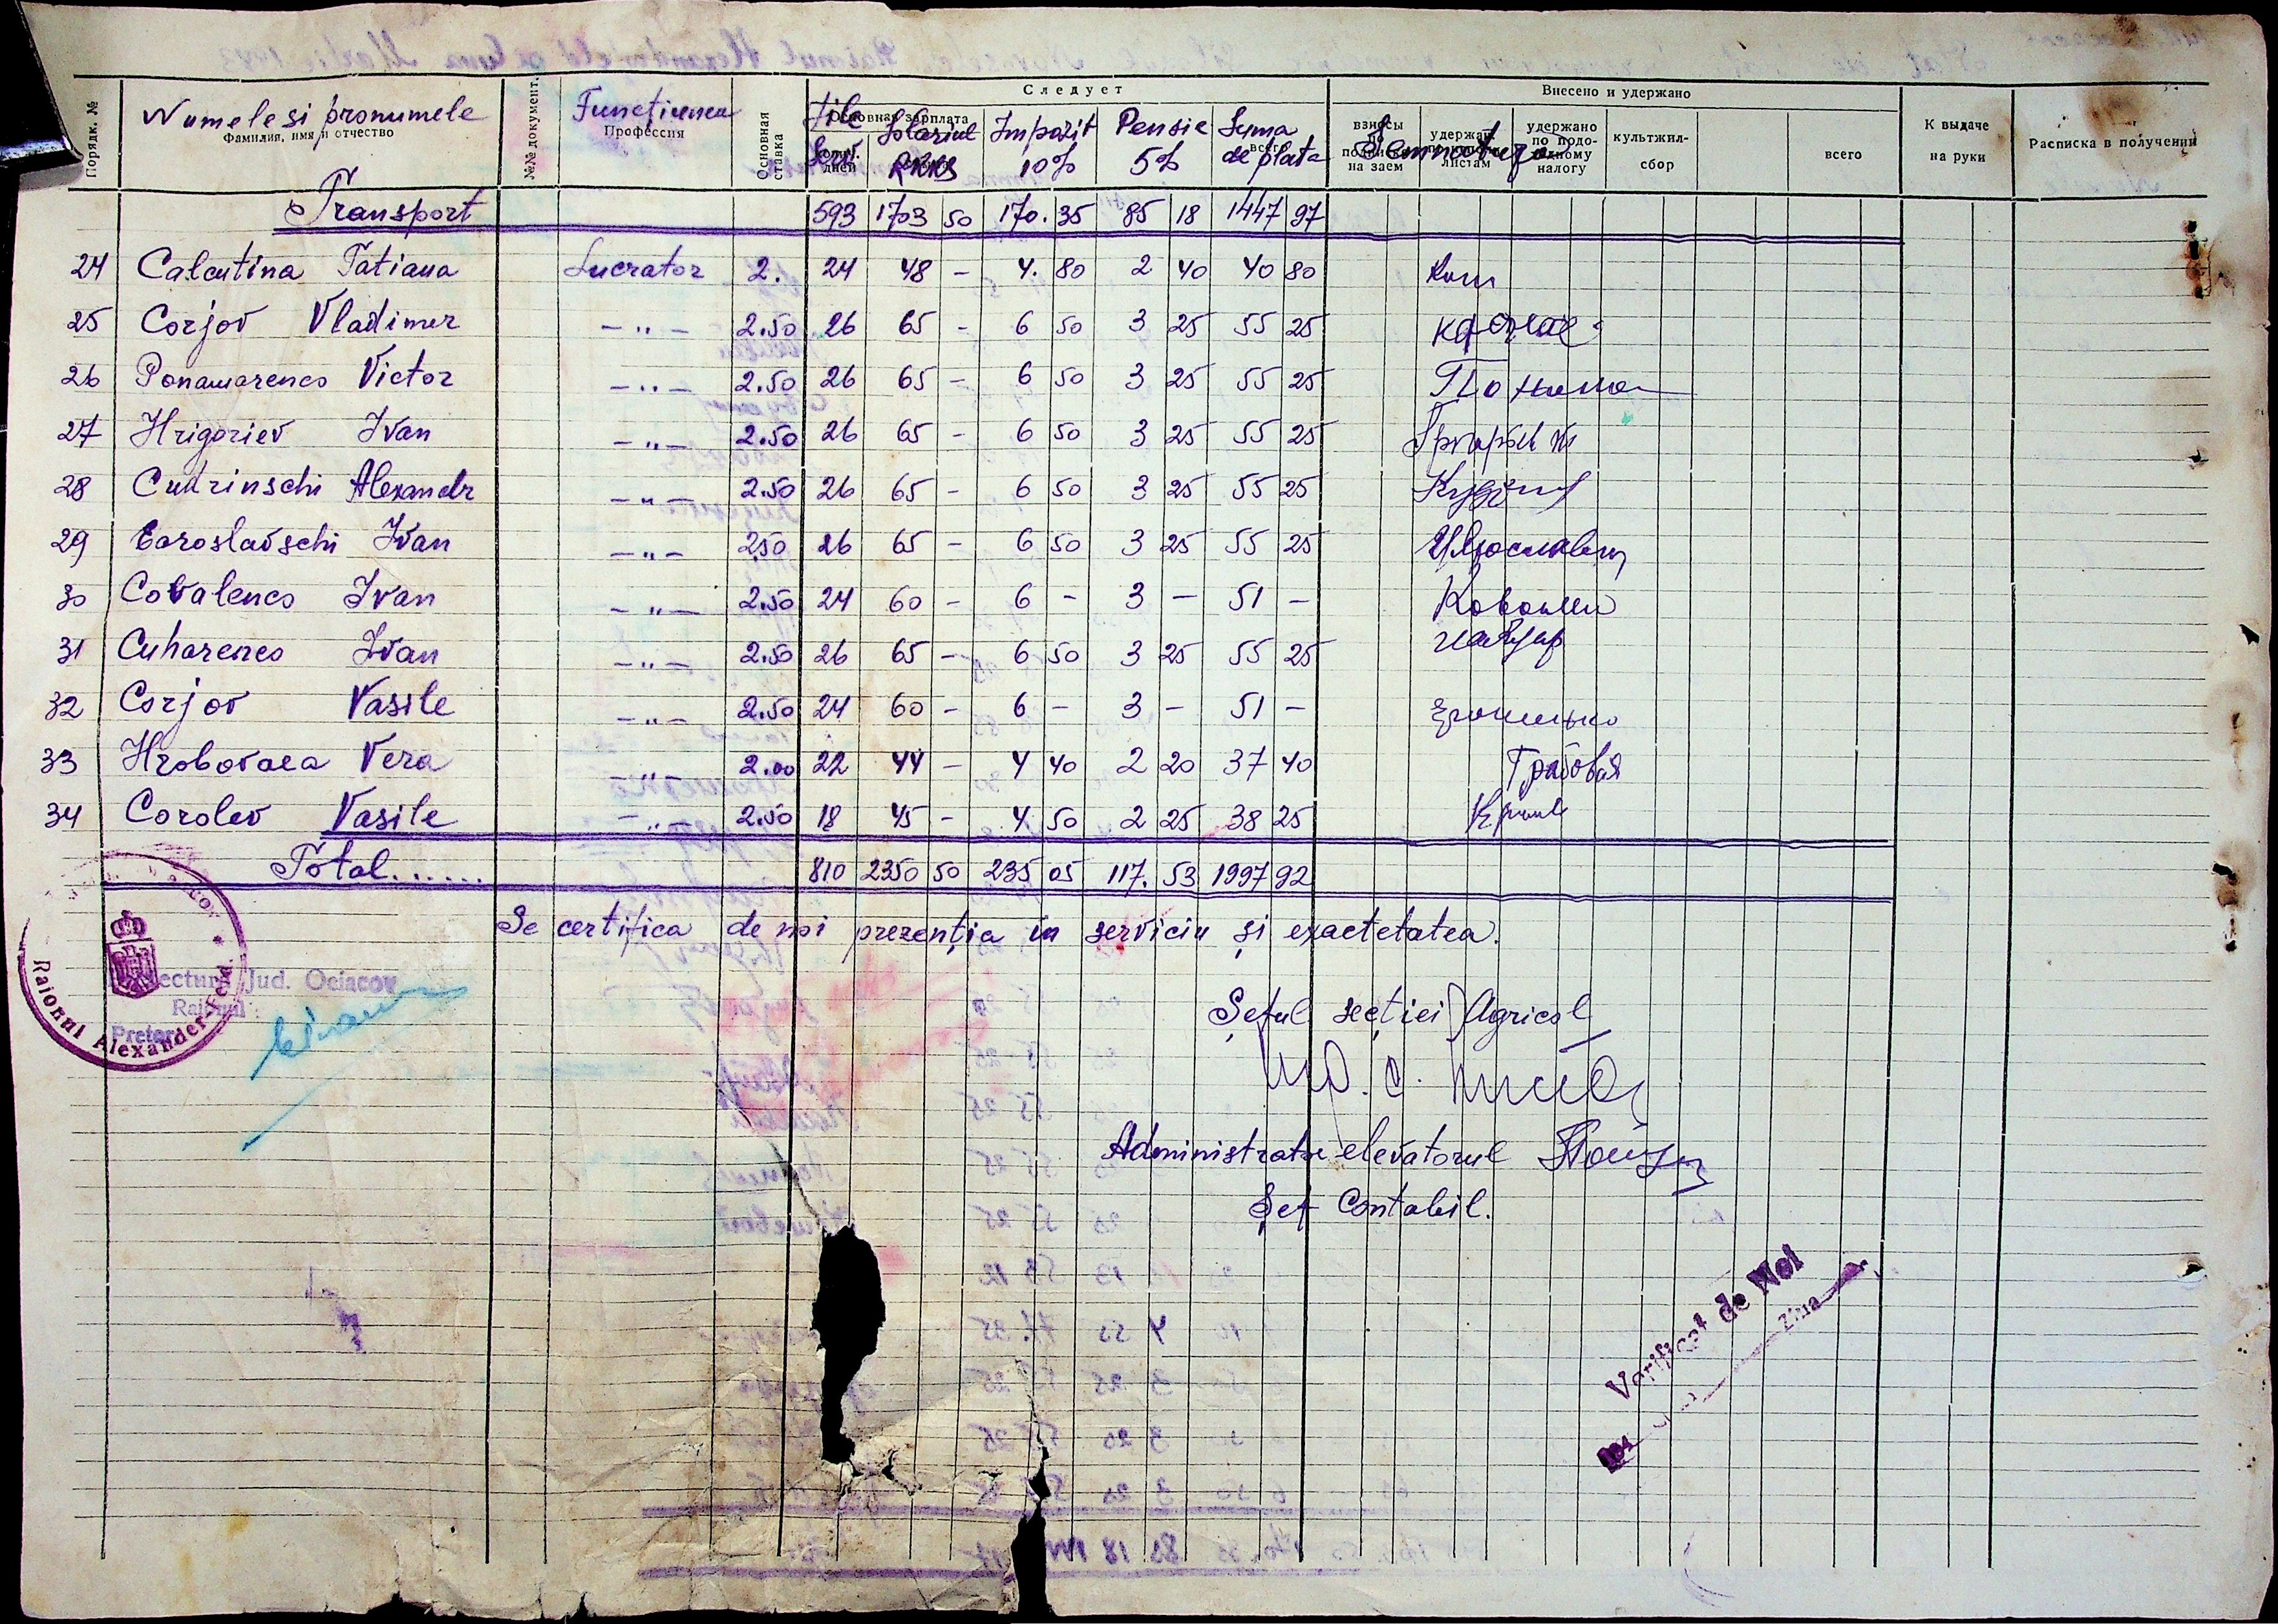 Следует
Внесено и удержано
Порядк. №
Numele si pronumele
Фамилия, имя и отчество
№№ документ.
Funcțiunea
Профессия
Основная ставка
Zile Serv.
Основная зарплата
дней
Solariul RKKS
Impozit 10%
Pensie 5%
Suma de plata
всего
Semnatura
взносы по подписке на заем
удержано по исполн. листам
удержано по подоходному налогу
культжил-сбор
всего
К выдаче на руки
Расписка в получении
Transport 593 1703 50 170. 35 85 18 1447 97
24 Calcutina Tatiana Lucrator 2. 24 48 - 4. 80 2 40 40 80
25 Corjov Vladimer - " - 2.50 26 65 - 6 50 3 25 55 25
26 Ponamarenco Victor - " - 2.50 26 65 - 6 50 3 25 55 25
27 Hrigoriev Ivan - " - 2.50 26 65 - 6 50 3 25 55 25
28 Cudrinschi Alexandr - " - 2.50 26 65 - 6 50 3 25 55 25
29 Earoslavschi Ivan - " - 2.50 26 65 - 6 50 3 25 55 25
30 Covalenco Ivan - " - 2.50 24 60 - 6 - 3 - 51 -
31 Cuharenco Ivan - " - 2.50 26 65 - 6 50 3 25 55 25
32 Corjov Vasile - " - 2.50 24 60 - 6 - 3 - 51 -
33 Hrobovaea Vera - " - 2.00 22 44 - 4 40 2 20 37 40 Грабовая
34 Corolev Vasile - " - 2.50 18 45 - 4 50 2 25 38 25
Total...... 810 2350 50 235 05 117. 53 1997 92
Se certifica de noi prezenția in serviciu și exactetatea.
Raionul Alexanderfeld.
Prefectura Jud. Oceacov
Raionul
Pretor
Șeful secției Agricol
Administrator elevatorul
Șef Contabil.
Verificat de Noi
Ziua